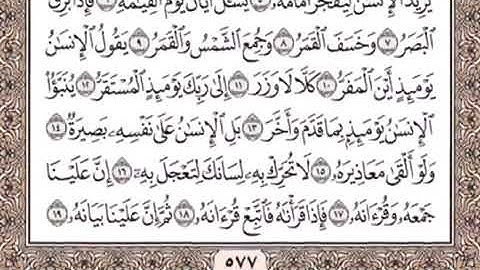 يُرِيدُ الْإِنسَٰنُ لِيَفْجُرَ أَمَامَهُۥ ۝٥ يَسْـَٔلُ أَيَّانَ يَوْمُ الْقِيَٰمَةِ ۝٦ فَإِذَا بَرِقَ
الْبَصَرُ ۝٧ وَخَسَفَ الْقَمَرُ ۝٨ وَجُمِعَ الشَّمْسُ وَالْقَمَرُ ۝٩ يَقُولُ الْإِنسَٰنُ
يَوْمَئِذٍ أَيْنَ الْمَفَرُّ ۝١٠ كَلَّا لَا وَزَرَ ۝١١ إِلَىٰ رَبِّكَ يَوْمَئِذٍ الْمُسْتَقَرُّ ۝١٢ يُنَبَّؤُا۟
الْإِنسَٰنُ يَوْمَئِذٍۭ بِمَا قَدَّمَ وَأَخَّرَ ۝١٣ بَلِ الْإِنسَٰنُ عَلَىٰ نَفْسِهِۦ بَصِيرَةٌ ۝١٤
وَلَوْ أَلْقَىٰ مَعَاذِيرَهُۥ ۝١٥ لَا تُحَرِّكْ بِهِۦ لِسَانَكَ لِتَعْجَلَ بِهِۦٓ ۝١٦ إِنَّ عَلَيْنَا
جَمْعَهُۥ وَقُرْءَانَهُۥ ۝١٧ فَإِذَا قَرَأْنَٰهُ فَاتَّبِعْ قُرْءَانَهُۥ ۝١٨ ثُمَّ إِنَّ عَلَيْنَا بَيَانَهُۥ ۝١٩
٥٧٧